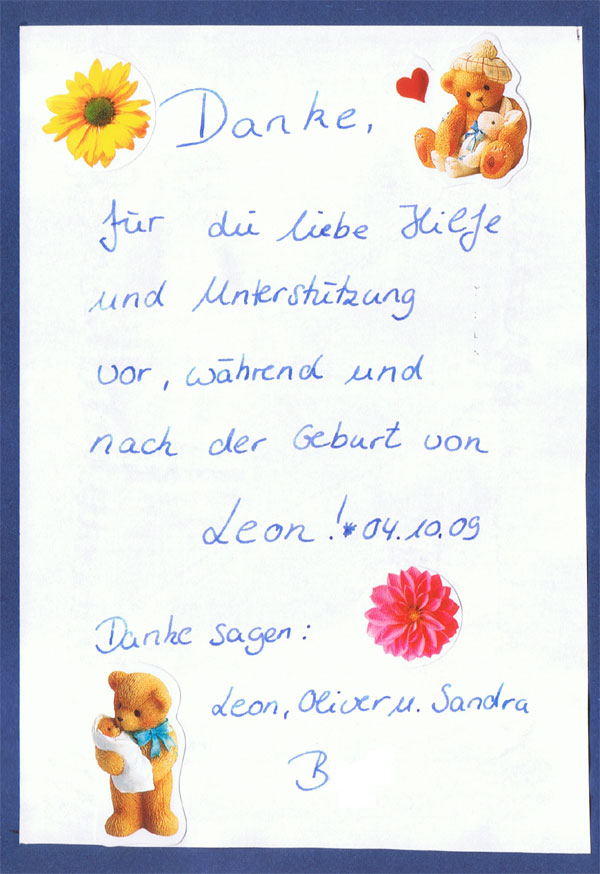 Danke,
für die liebe Hilfe
und Unterstützung
vor, während und
nach der Geburt von
Leon! *04.10.09
Danke sagen:
Leon, Oliver u. Sandra
B